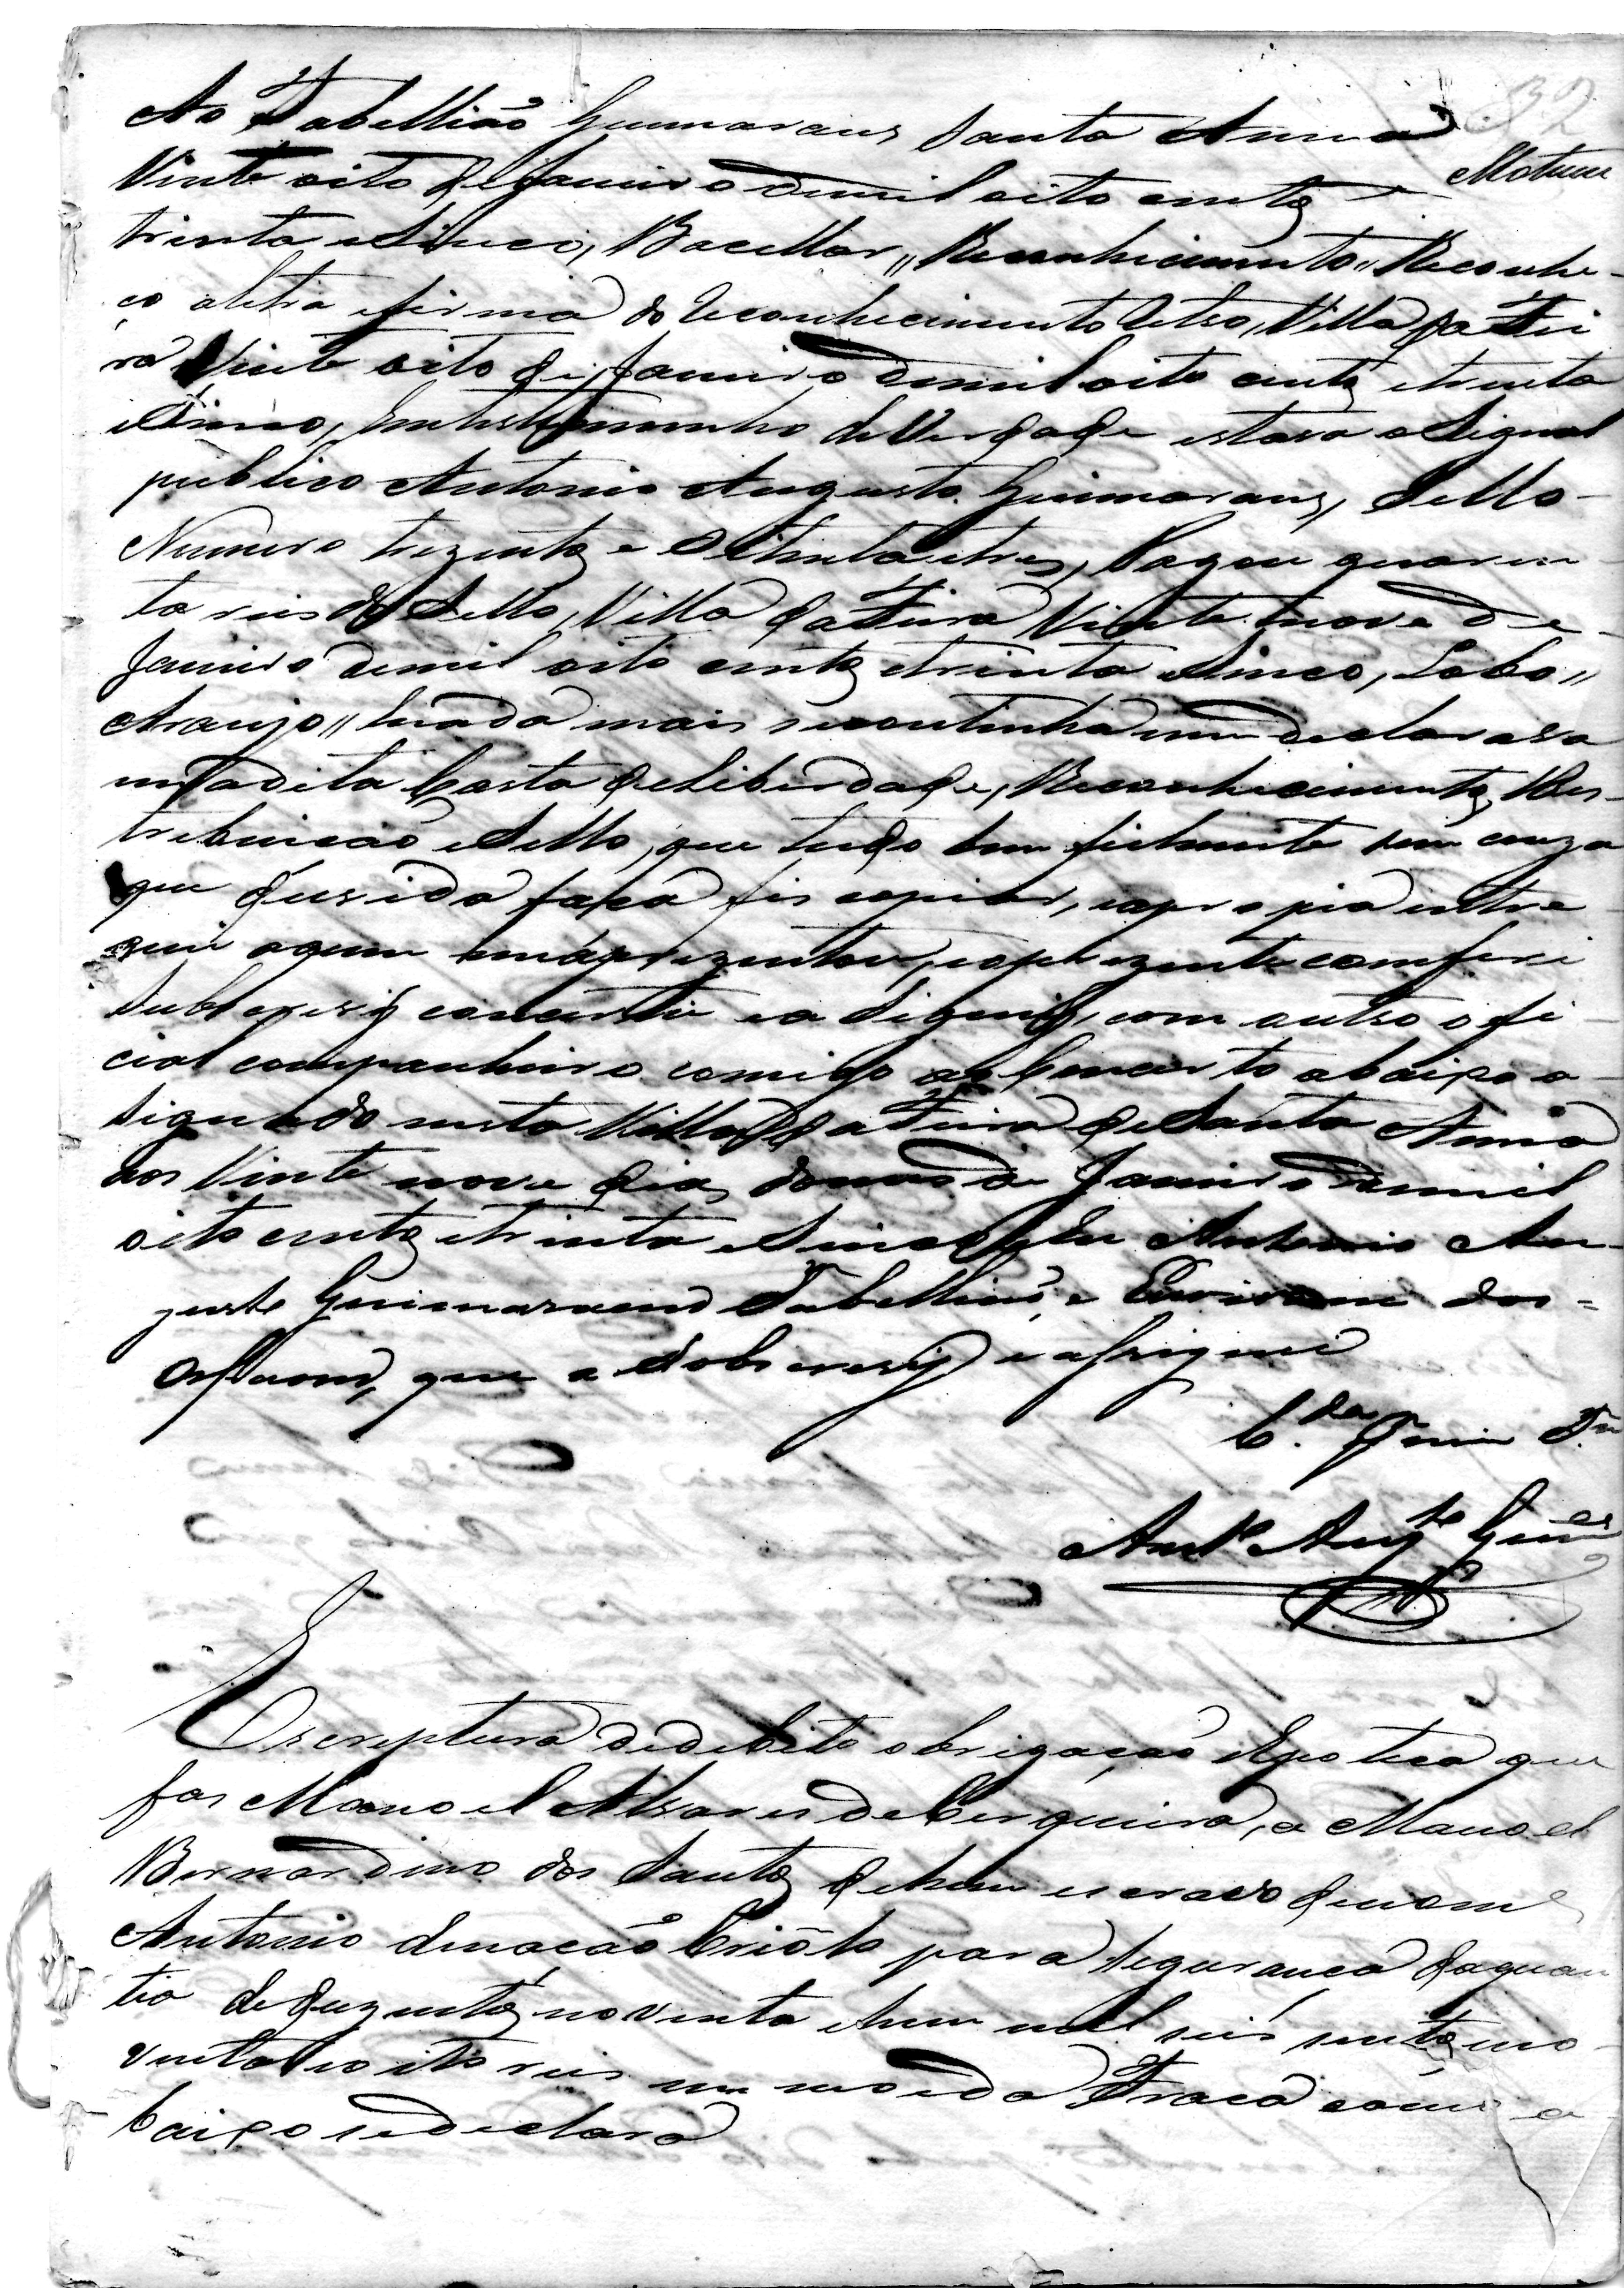 32
Ao Tabellião Guimaraens Santa Anna
Vinte oito de Janeiro de mil oito centos
trinta e Sinco, Bacellar,, Reconhecimento,, Reconhe-
ço aletra efirma do Reconhecimento Retro, Villa da Fei
ra Vinte oito de Janeiro demil oito centos etrinta
eSinco, Emtestemunho de Verdade estava o Signal
publico Antonio Augusto Guimaraens, Sello
Numero trezentos e Setenta etres, Pagou quaren
ta reis do Sello, Villa da Feira Vinte nove de
Janeiro demil oito centos etrinta eSinco, Lobo,,
Araujo,, enada mais secontinha nem declarava
emadita Carta deLiberdade, Reconhecimentos, Des-
trebuicão eSello, que tudo bem fielmente sem couza
que duvida faça fis copiar, eapropia entre
guei aquem ma aprezentou, eaprezente comferi
Subscrevy concertei ea Signei, com outro ofi
cial companheiro comigo ao Concerto abaixo a
Signado nesta Villa da Feira de Santa Anna
aos Vinte nove dias domes de Janeiro demil
oito centos etrinta eSinco Eu Antonio Au-
gusto Guimaraens Tabellião, e Escrivam dos
Orfaons, que a Sobscrevy eaSsignei
C. da por mim Tm
Anto Augto Guies
Escreptura dedebito obrigação eIpoteca que
fas Manoel Alvares deCerqueira, a Manoel
Bernardino dos Santos dehum escravo denome
Antonio denacão Criôlo para Segurança daquan
tia de duzentos noventa ehum mil seis centos no
venta eoito reis em moeda Fraca como a
baixo sedeclara